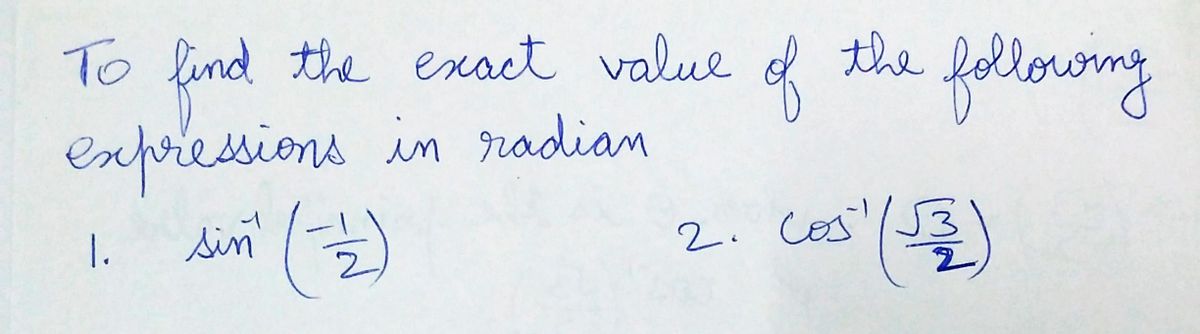 To find the exact value of the following
expressions in radian
1. sin⁻¹ (-1/2) 2. cos⁻¹ (√3/2)